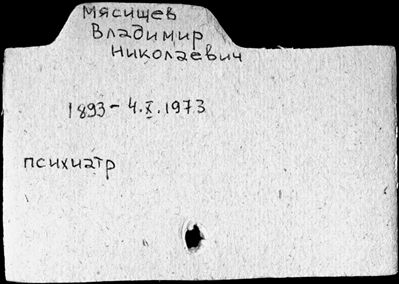 Мясищев
Владимир
Николаевич
1893-4.X.1973
психиатр